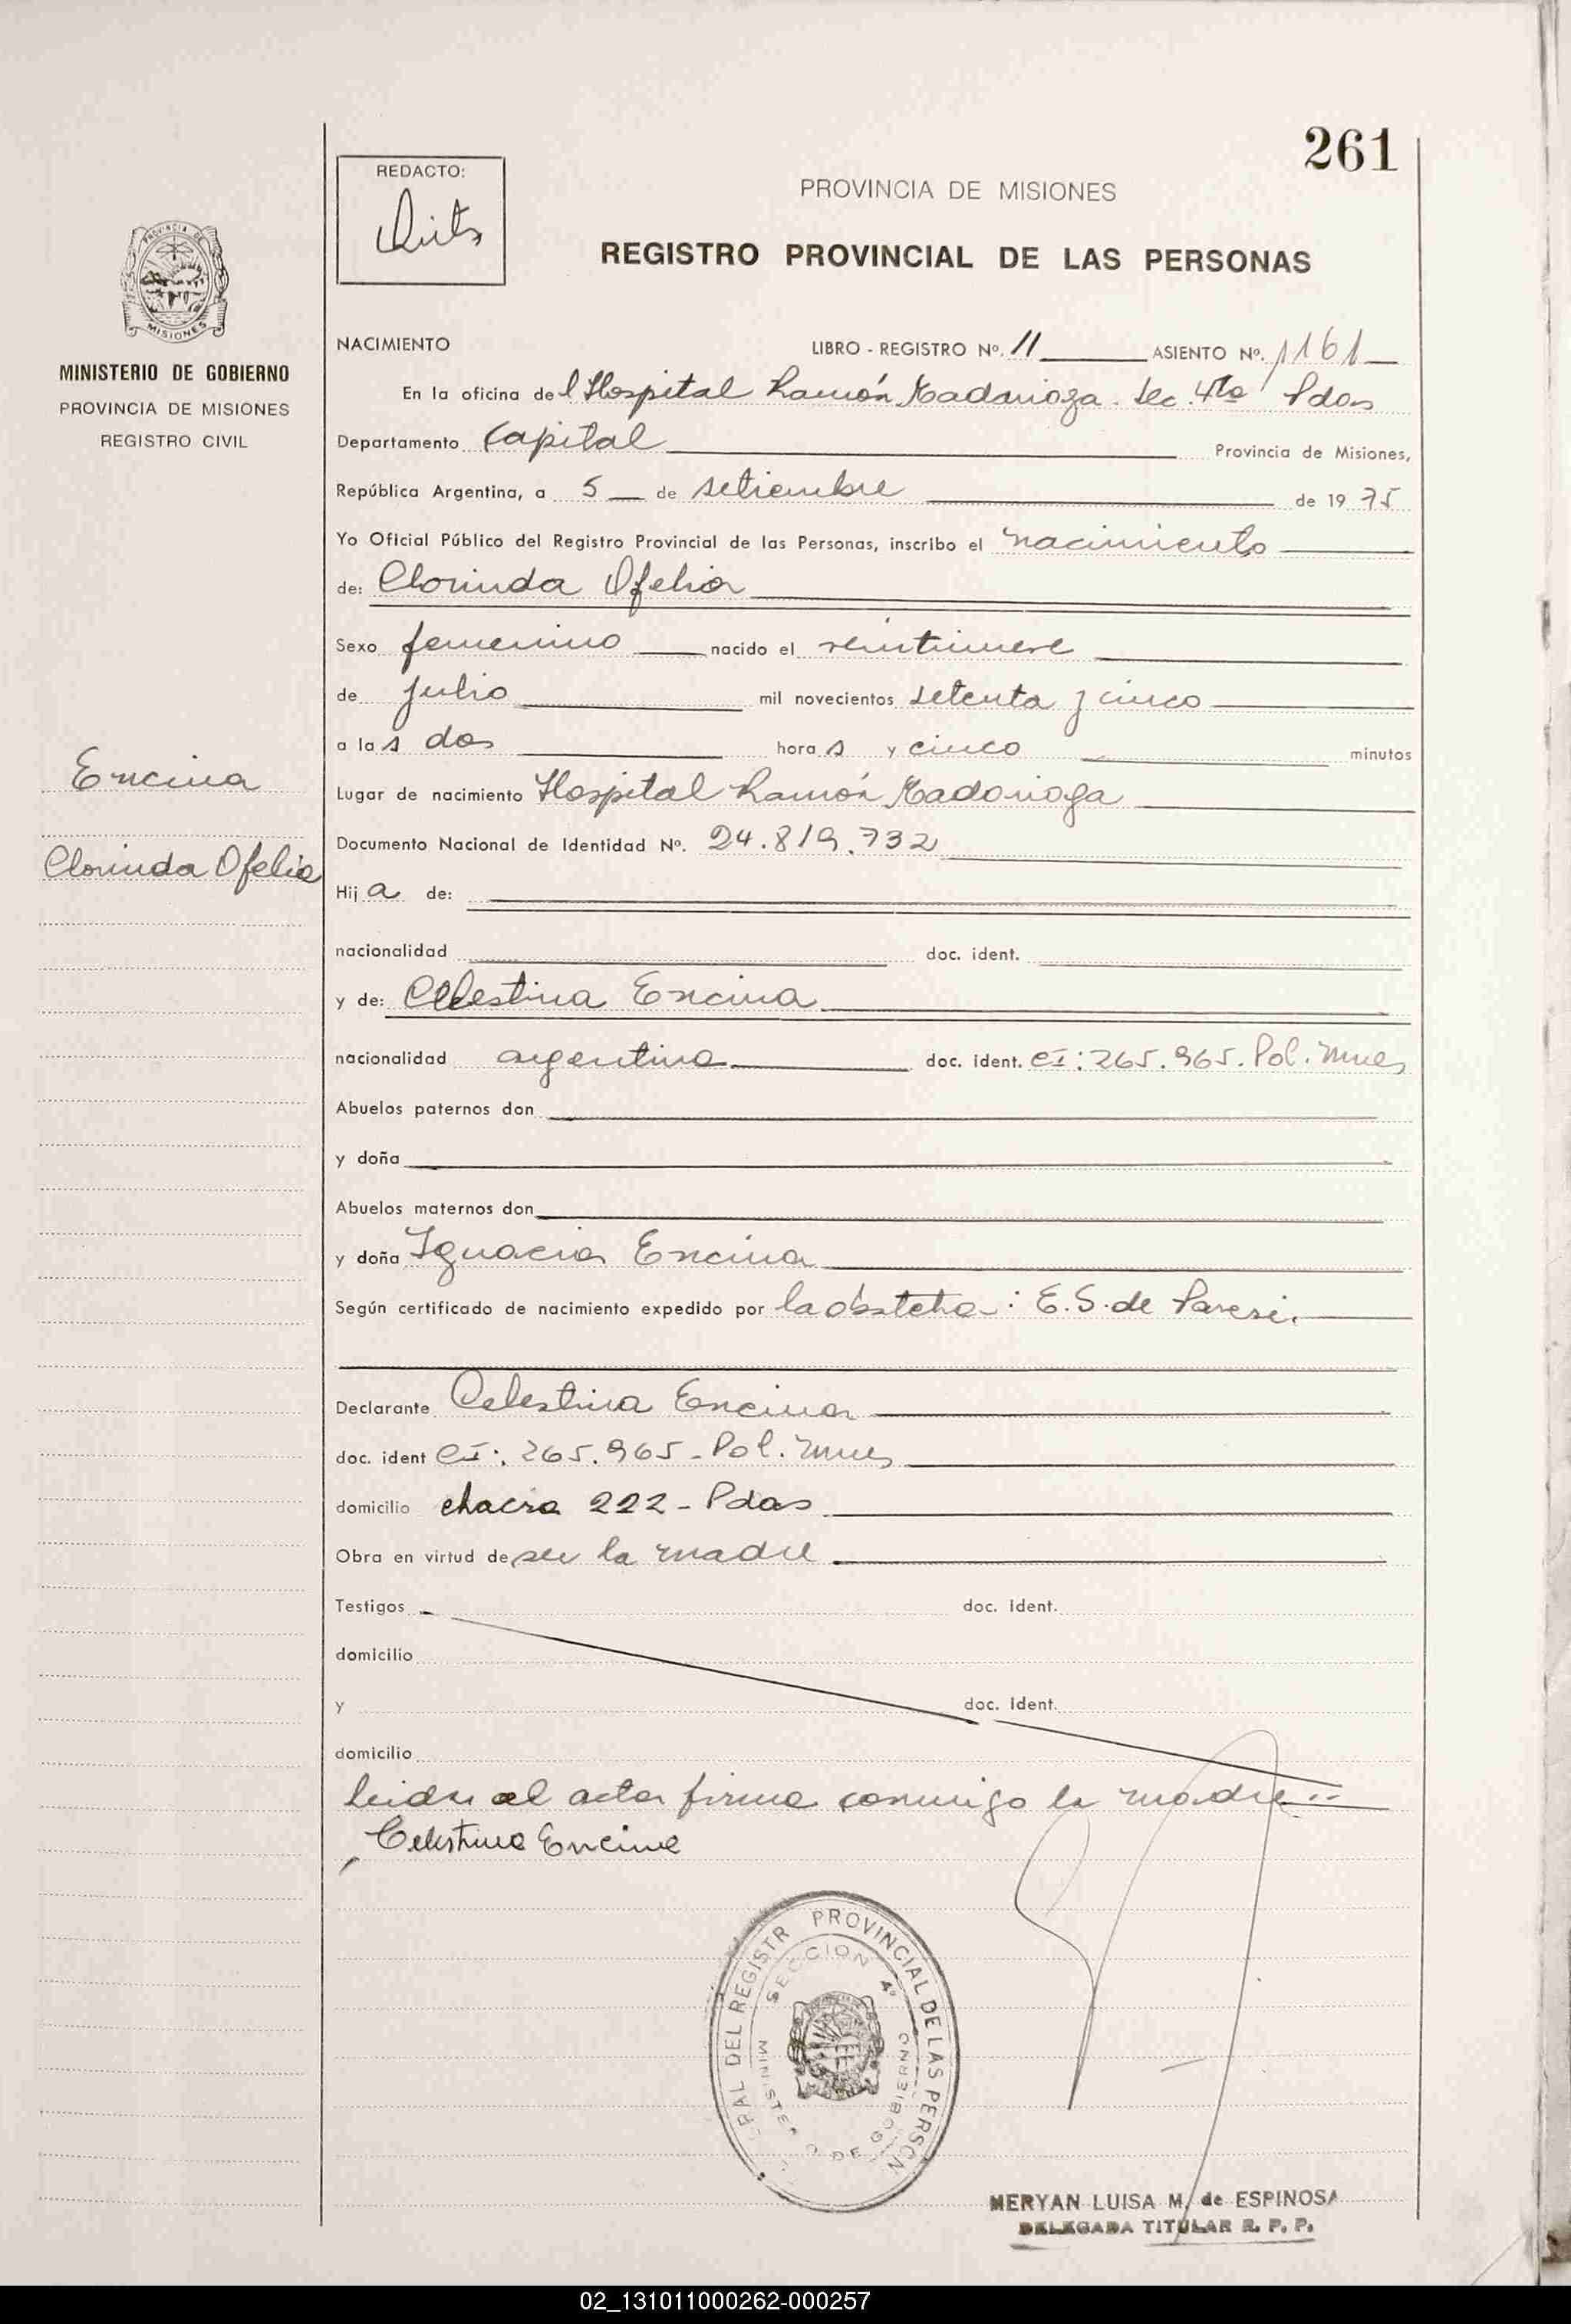 261
REDACTO:
PROVINCIA DE MISIONES
REGISTRO PROVINCIAL DE LAS PERSONAS
MISIONES
MINISTERIO DE GOBIERNO
PROVINCIA DE MISIONES
REGISTRO CIVIL
NACIMIENTO LIBRO - REGISTRO Nº. 11 ASIENTO Nº. 1161
En la oficina del Hospital Ramón Madariaga. Sec. 4ta Pdas
Departamento Capital Provincia de Misiones,
República Argentina, a 5 de setiembre de 1975
Yo Oficial Público del Registro Provincial de las Personas, inscribo el nacimiento
de: Clorinda Ofelia
Sexo femenino nacido el veintinueve
de julio mil novecientos setenta y cinco
a las dos horas y cinco minutos
Encina
Lugar de nacimiento Hospital Ramón Madariaga
Documento Nacional de Identidad Nº. 24.819.732
Clorinda Ofelia
Hija de:
nacionalidad doc. ident.
y de: Celestina Encina
nacionalidad argentina doc. ident. CI: 265.965. Pol. Mnes
Abuelos paternos don
y doña
Abuelos maternos don
y doña Ignacia Encina
Según certificado de nacimiento expedido por la obstetra: E.S. de
Declarante Celestina Encina
doc. ident CI: 265.965 - Pol. Mnes
domicilio chacra 222 - Pdas
Obra en virtud de ser la madre
Testigos doc. ident.
domicilio
y doc. ident.
domicilio
Leida el acta firma conmigo la madre
Celestina Encina
PAL DEL REGISTR PROVINCIAL DE LAS PERSON
SECCION 4º
MINISTE O DE GOBIERNO
MERYAN LUISA M. de ESPINOSA
DELEGADA TITULAR R. P. P.
02_131011000262-000257